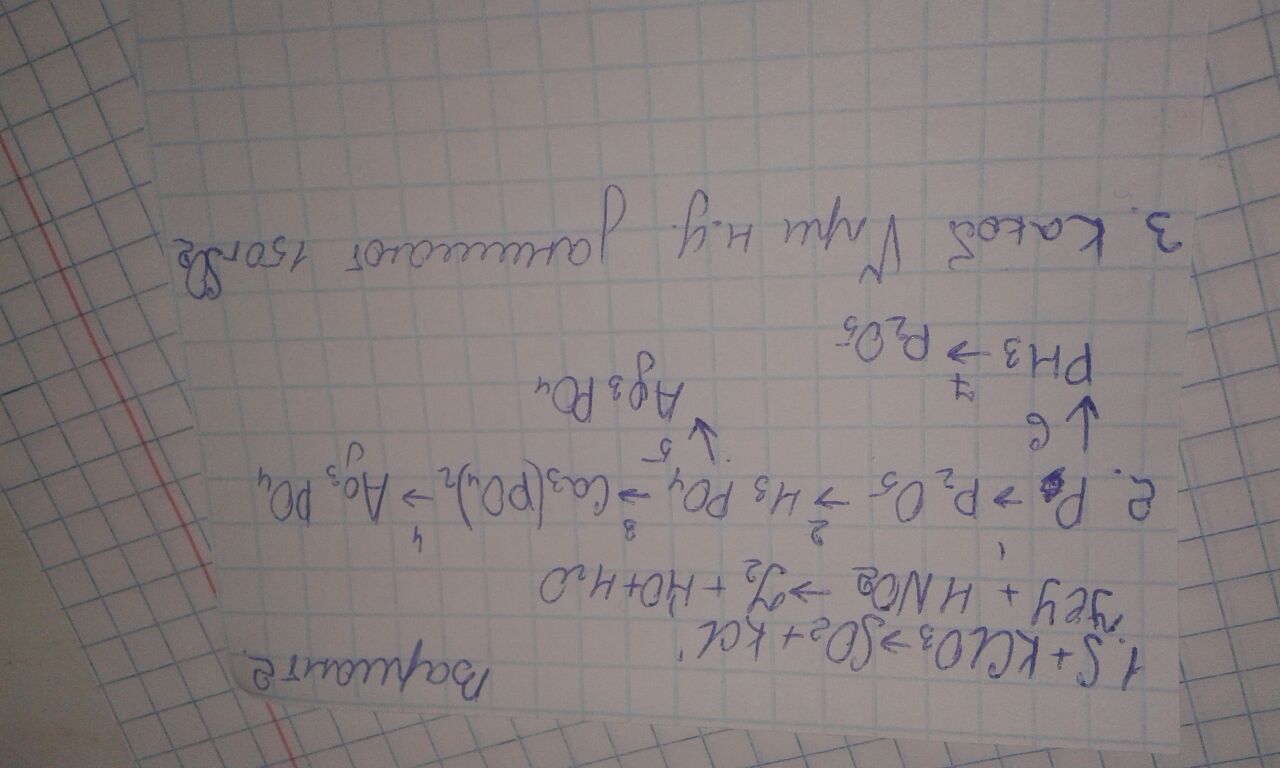 Вариант 2
1. S + KClO3 → SO2 + KCl
+ HNO2 → J2 + NO + H2O
2. P →1 P2O5 →2 H3PO4 →3 Ca3(PO4)2 →4 Ag3PO4
↓ 6 ↓ 5
Ag3PO4
PH3 →7 P2O5
3. Какой V при н.у. занимают 150г SO2